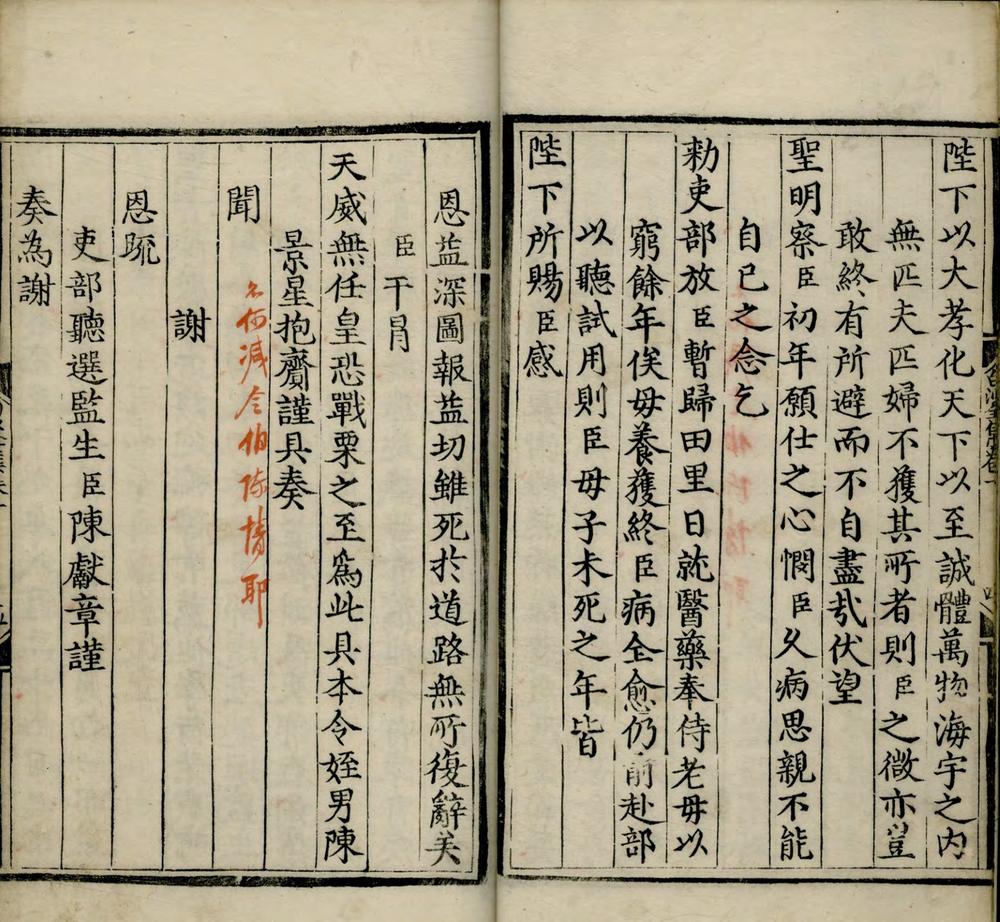 陛下以大孝化天下以至誠體萬物海宇之内
無匹夫匹婦不獲其所者則臣之微亦豈
敢終有所避而不自盡㢤伏望
聖明察臣初年願仕之心憫臣久病思親不能
自已之念乞
勑吏部放臣暫歸田里日就醫藥奉侍老母以
窮餘年俟母養獲終臣病全愈仍前赴部
以聽試用則臣母子未死之年皆
陛下所賜臣感
恩益深圖報益切雖死於道路無所復辭矣
臣干冐
天威無任皇恐戰栗之至爲此具本令姪男陳
景星抱賫謹具奏
聞
不何減令伯陳情耶
謝
恩疏
吏部聽選監生臣陳獻章謹
奏為謝